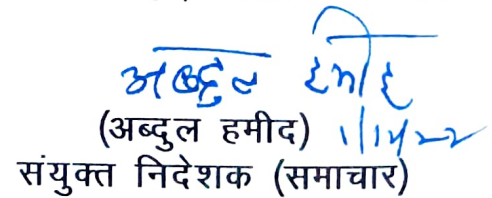 अब्दुल हमीद
(अब्दुल हमीद)
संयुक्त निदेशक (समाचार)